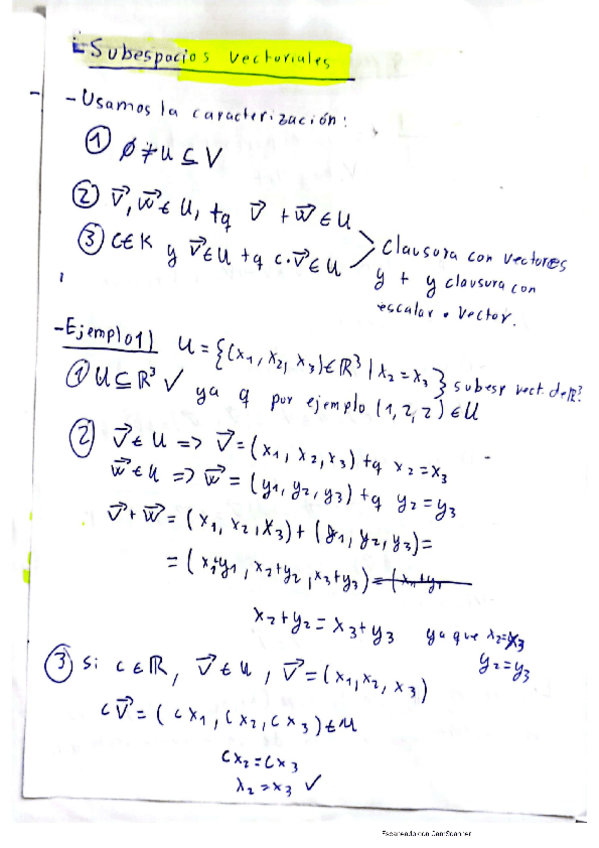 Subespacios vectoriales
- Usamos la caracterización:
① ∅ ≠ U ⊆ V
② v⃗, w⃗ ∈ U, tq v⃗ + w⃗ ∈ U
③ c ∈ K y v⃗ ∈ U tq c·v⃗ ∈ U
clausura con vectores
y + y clausura con
escalar · vector.
- Ejemplo 1) U = {(x₁, x₂, x₃) ∈ ℝ³ | x₂ = x₃} subesp vect. de ℝ³?
① U ⊆ ℝ³ ✓ ya q por ejemplo (1, 2, 2) ∈ U
② v⃗ ∈ U => v⃗ = (x₁, x₂, x₃) tq x₂ = x₃
w⃗ ∈ U => w⃗ = (y₁, y₂, y₃) tq y₂ = y₃
v⃗ + w⃗ = (x₁, x₂, x₃) + (y₁, y₂, y₃) =
= (x₁+y₁, x₂+y₂, x₃+y₃) = (x₁+y₁
x₂+y₂ = x₃+y₃ ya que x₂=x₃
y₂=y₃
③ si c ∈ ℝ, v⃗ ∈ U, v⃗ = (x₁, x₂, x₃)
c v⃗ = (cx₁, cx₂, cx₃) ∈ U
cx₂ = cx₃
x₂ = x₃ ✓
Escaneado con CamScanner